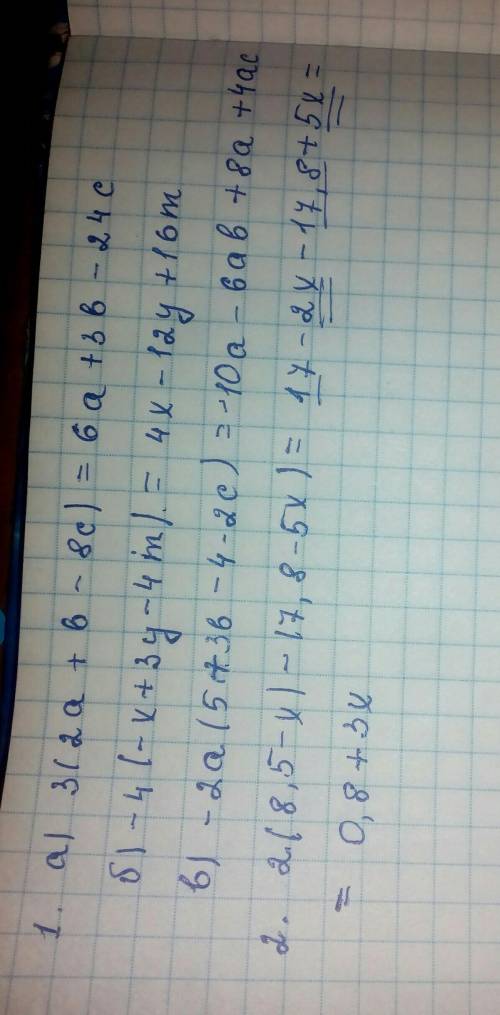 1. а) 3(2a + в - 8c) = 6a + 3в - 24c
б) -4(-x + 3y - 4m) = 4x - 12y + 16m
в) -2a(5 + 3в - 4 - 2c) = -10a - 6aв + 8a + 4ac
2. 2(8,5 - x) - 17,8 - 5x) = 17 - 2x - 17,8 + 5x =
= 0,8 + 3x